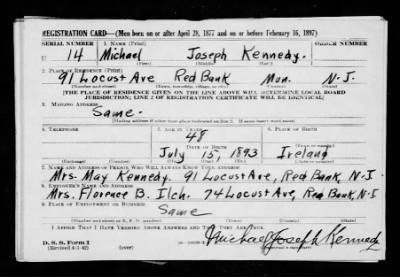 REGISTRATION CARD—(Men born on or after April 28, 1877 and on or before February 16, 1897)
SERIAL NUMBER 1. NAME (Print) ORDER NUMBER
U 14 Michael Joseph Kennedy.
(First) (Middle) (Last)
2. PLACE OF RESIDENCE (Print)
91 Locust Ave Red Bank Mon. N.J.
(Number and street) (Town, township, village, or city) (County) (State)
[THE PLACE OF RESIDENCE GIVEN ON THE LINE ABOVE WILL DETERMINE LOCAL BOARD
JURISDICTION; LINE 2 OF REGISTRATION CERTIFICATE WILL BE IDENTICAL]
3. MAILING ADDRESS
Same.
[Mailing address if other than place indicated on line 2. If same insert word same]
4. TELEPHONE 5. AGE IN YEARS 6. PLACE OF BIRTH
48
DATE OF BIRTH
July 15, 1893 Ireland
(Exchange) (Number) (Mo.) (Day) (Yr.) (State or country)
7. NAME AND ADDRESS OF PERSON WHO WILL ALWAYS KNOW YOUR ADDRESS
Mrs. May Kennedy. 91 Locust Ave, Red Bank, N.J.
8. EMPLOYER'S NAME AND ADDRESS
Mrs. Florence B. Ilch. 74 Locust Ave, Red Bank, N.J
9. PLACE OF EMPLOYMENT OR BUSINESS
Same
(Number and street or R. F. D. number) (Town) (County) (State)
I AFFIRM THAT I HAVE VERIFIED ABOVE ANSWERS AND THAT THEY ARE TRUE.
D. S. S. Form 1
(Revised 4-1-42) (over)
Michael Joseph Kennedy